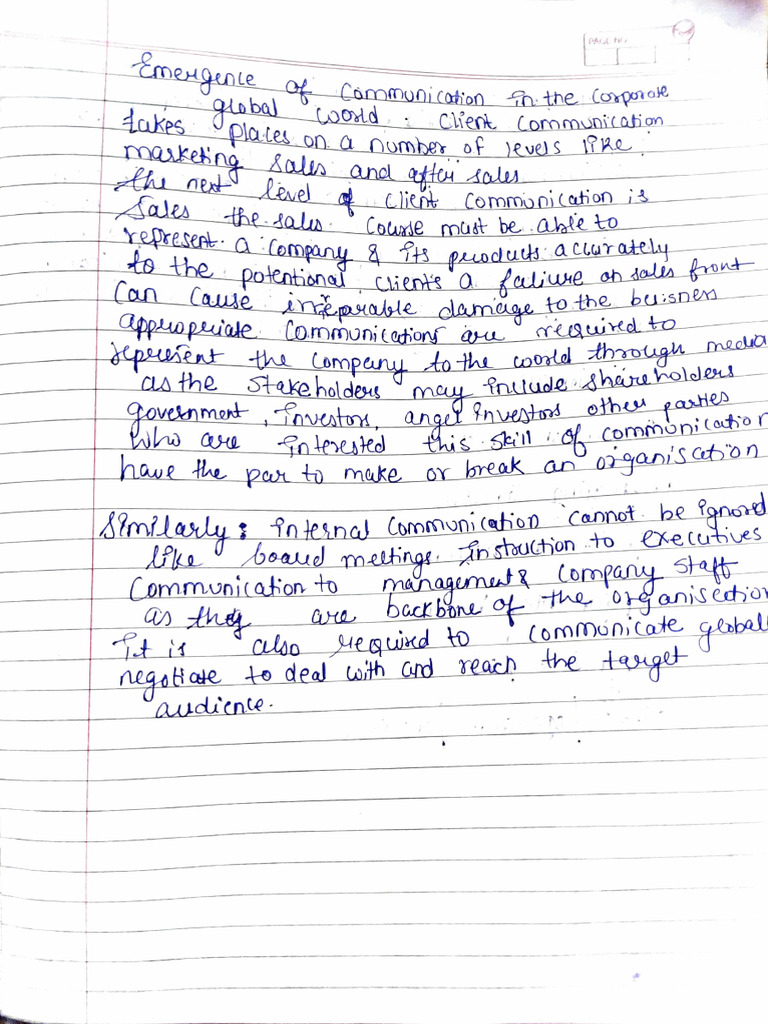 PAGE No.
Emergence of Communication in the Corporate
global world : Client Communication
takes places on a number of levels like :
marketing sales and after sales
the next level of client communication is
Sales the sales course must be able to
represent a company & its products accurately
to the potential clients a faliure on sales front
Can cause irreparable damage to the buisness
appropriate communications are required to
represent the company to the world through media
as the stakeholders may include shareholders
government, investors, angel investors other parties
who are interested this skill of communication
have the par to make or break an organisation
Similarly : internal communication cannot be ignored
like board meetings instruction to executives
communication to management & company staff
as they are backbone of the organisection
It is also required to communicate globall
negotiate to deal with and reach the target
audience.